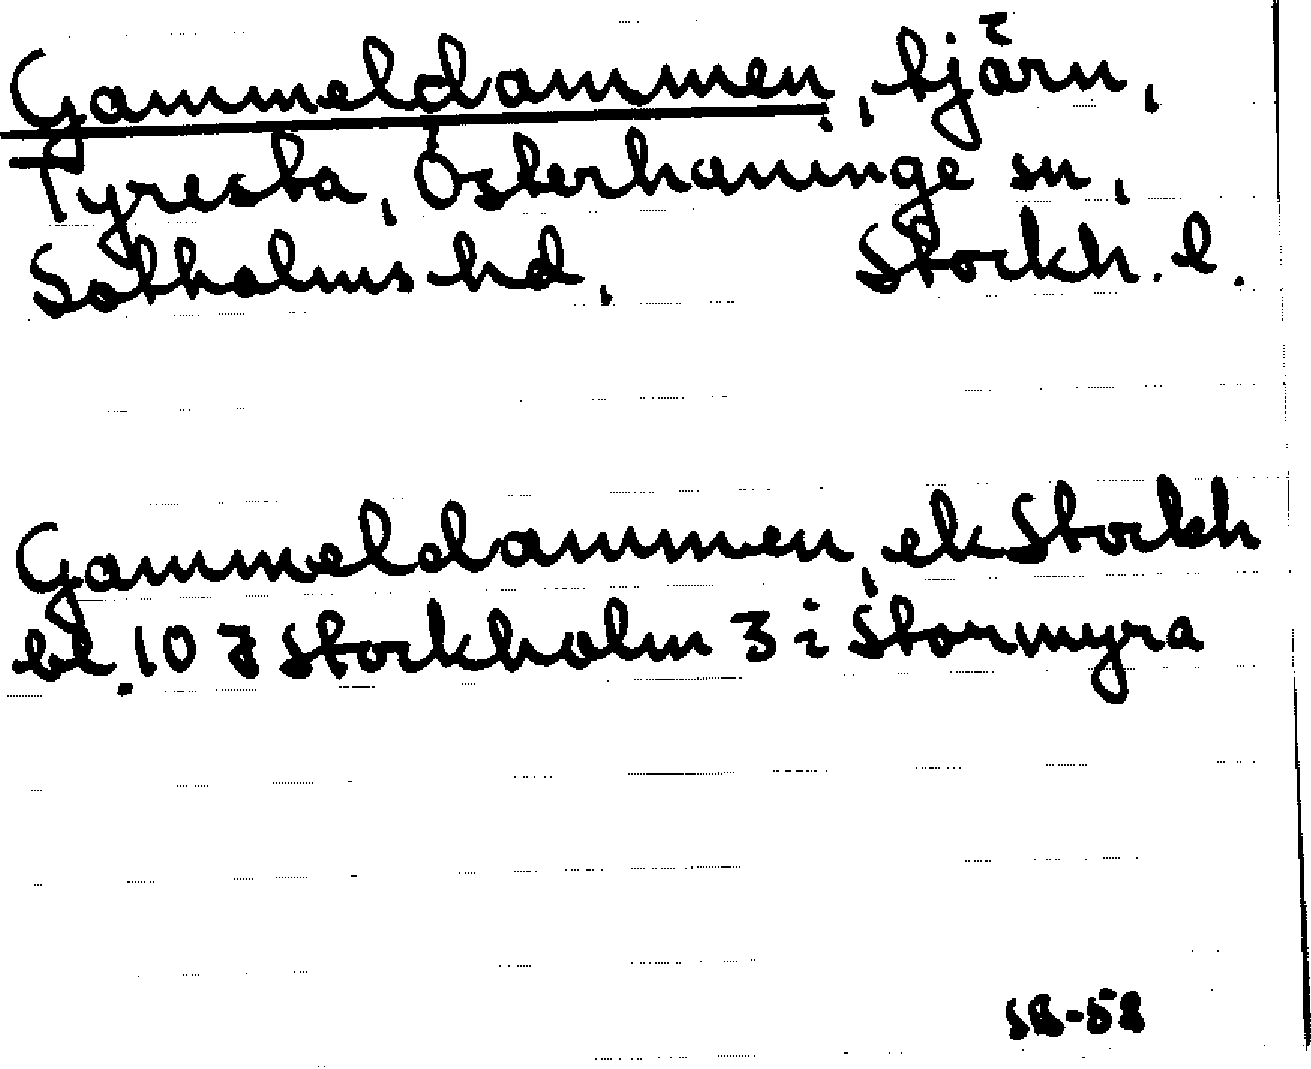 Gammeldammen, tjärn,
Tyresta, Österhaninge sn,
Sotholms hd, Stockh. l.
Gammeldammen, ek Stockh
bl. 10 J Stockholm 3 i Stormyra
SB-58